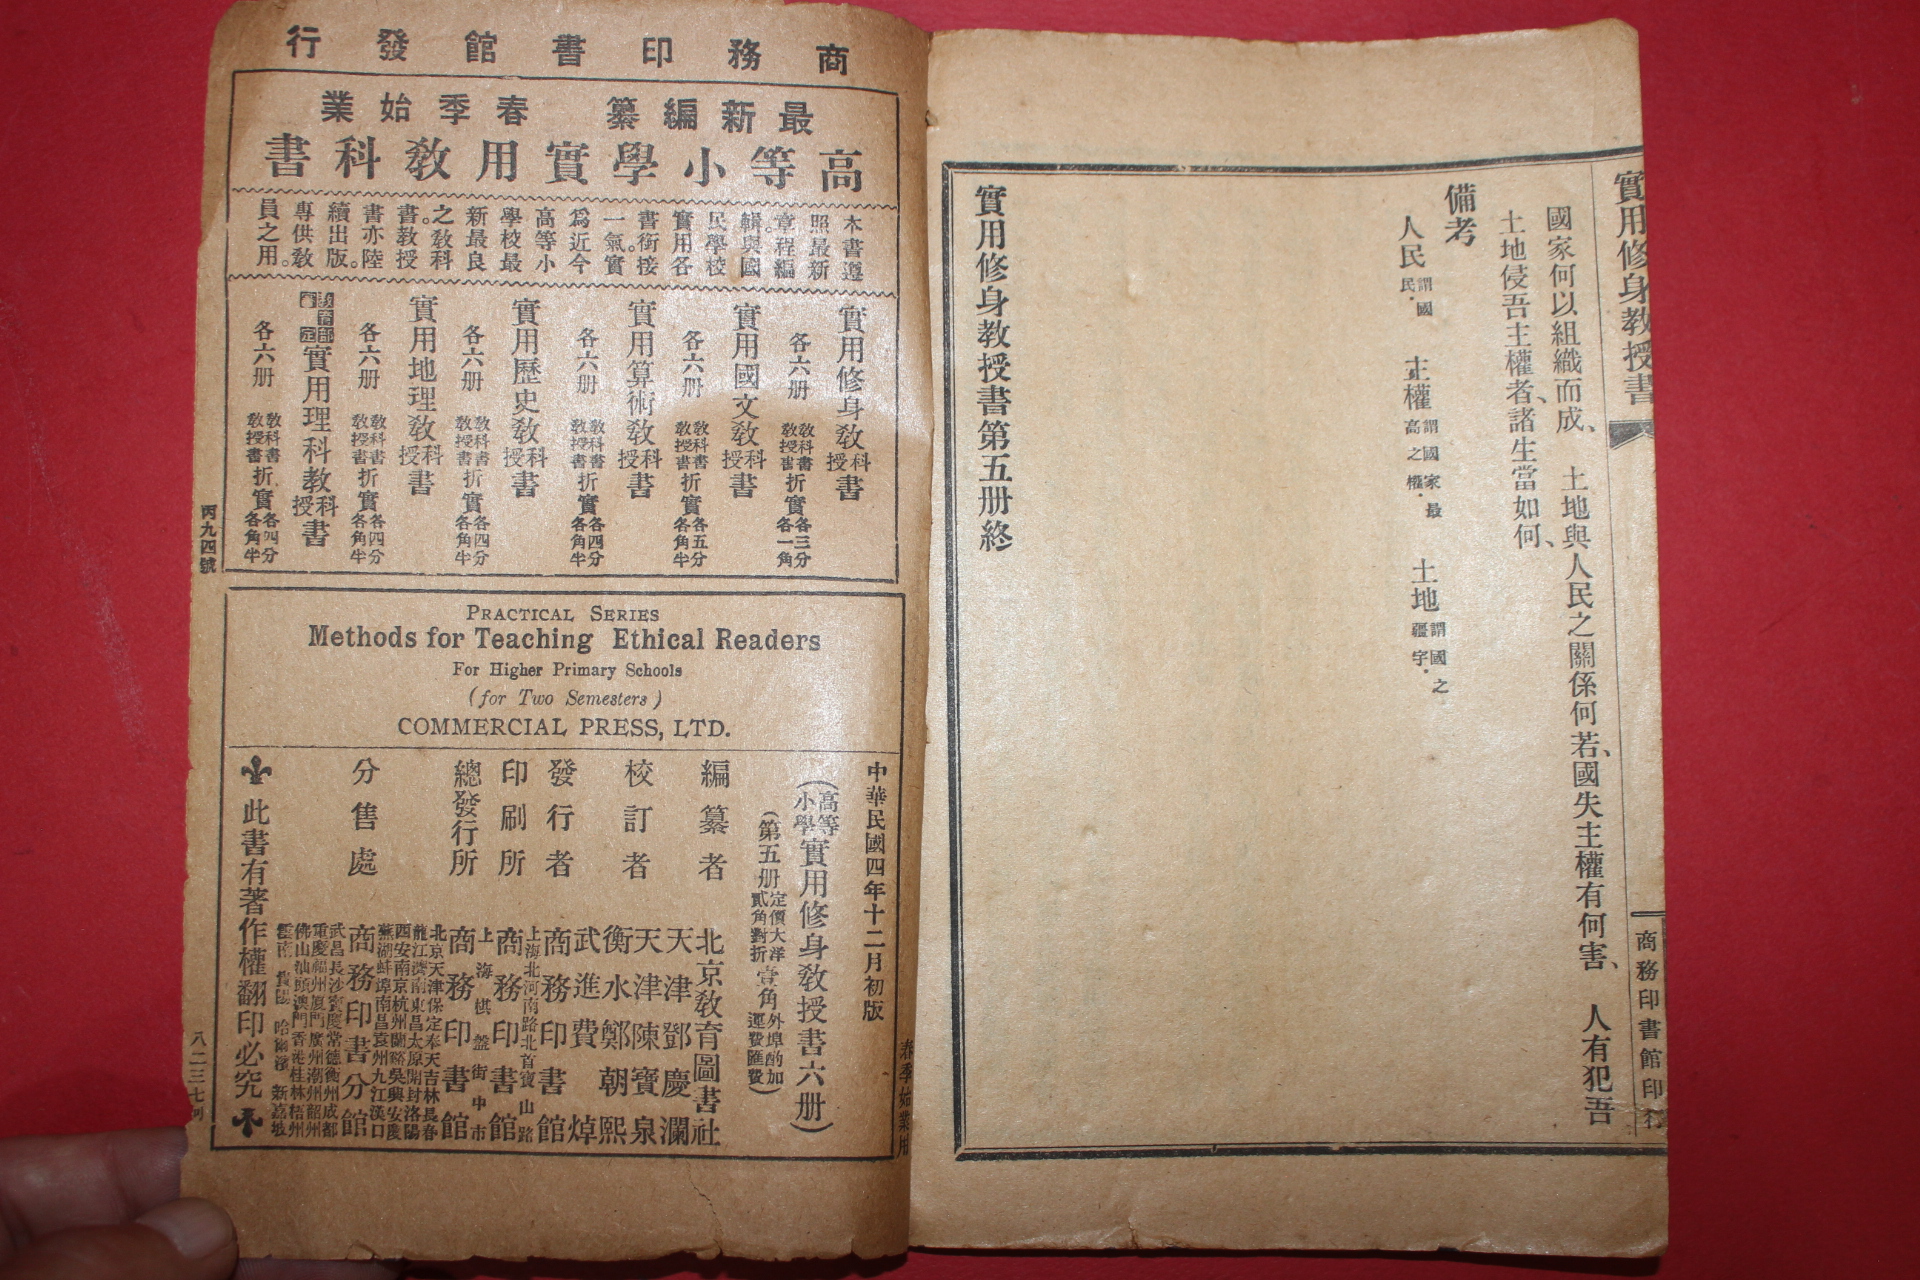 實用修身教授書
商務印書館印行
國家何以組織而成、土地與人民之關係何若、國失主權有何害、人有犯吾
土地侵吾主權者、諸生當如何、
備考
人民 謂國民．　主權 謂國家最高之權．　土地 謂國之疆宇．
實用修身教授書第五册終
商務印書館發行
最新編纂　春季始業
高等小學實用教科書
本書遵
照最新
章程編
輯。與國
民學校
實用各
書銜接
一氣。實
爲近今
高等小
學校最
新最良
之教科
書。教授
書亦陸
續出版。
專供教
員之用。
實用修身教科授書
各六册 教科書教授書折實各三分各一角
實用國文教科授書
各六册 教科書教授書折實各五分各角半
實用算術教科授書
各六册 教科書教授書折實各四分各角半
實用歷史教科授書
各六册 教科書教授書折實各四分各角半
實用地理教科授書
各六册 教科書教授書折實各四分各角半
教育部審定 實用理科教科授書
各六册 教科書教授書折實各四分各角半
丙九四號
PRACTICAL SERIES
Methods for Teaching Ethical Readers
For Higher Primary Schools
(for Two Semesters)
COMMERCIAL PRESS, LTD.
春季始業用
中華民國四年十二月初版
(高等小學實用修身教授書六册)
(第五册 定價大洋貳角對折壹角 外埠酌加運費匯費)
編纂者 北京教育圖書社
天津鄧慶瀾
校訂者 天津陳寶泉
衡水鄭朝熙
武進費焯
發行者 商務印書館
印刷所 上海北河南路北首寶山路
商務印書館
總發行所 上海棋盤街中市
商務印書館
分售處 北京天津保定奉天吉林長春
龍江濟南東昌太原開封洛陽
西安南京杭州蘭谿吳興安慶
蕪湖蚌埠南昌袁州九江漢口
商務印書分館
武昌長沙寶慶常德衡州成都
重慶福州廈門廣州潮州韶州
佛山汕頭澳門香港桂林梧州
雲南 貴陽 哈爾濱 新嘉坡
此書有著作權翻印必究
八二三七